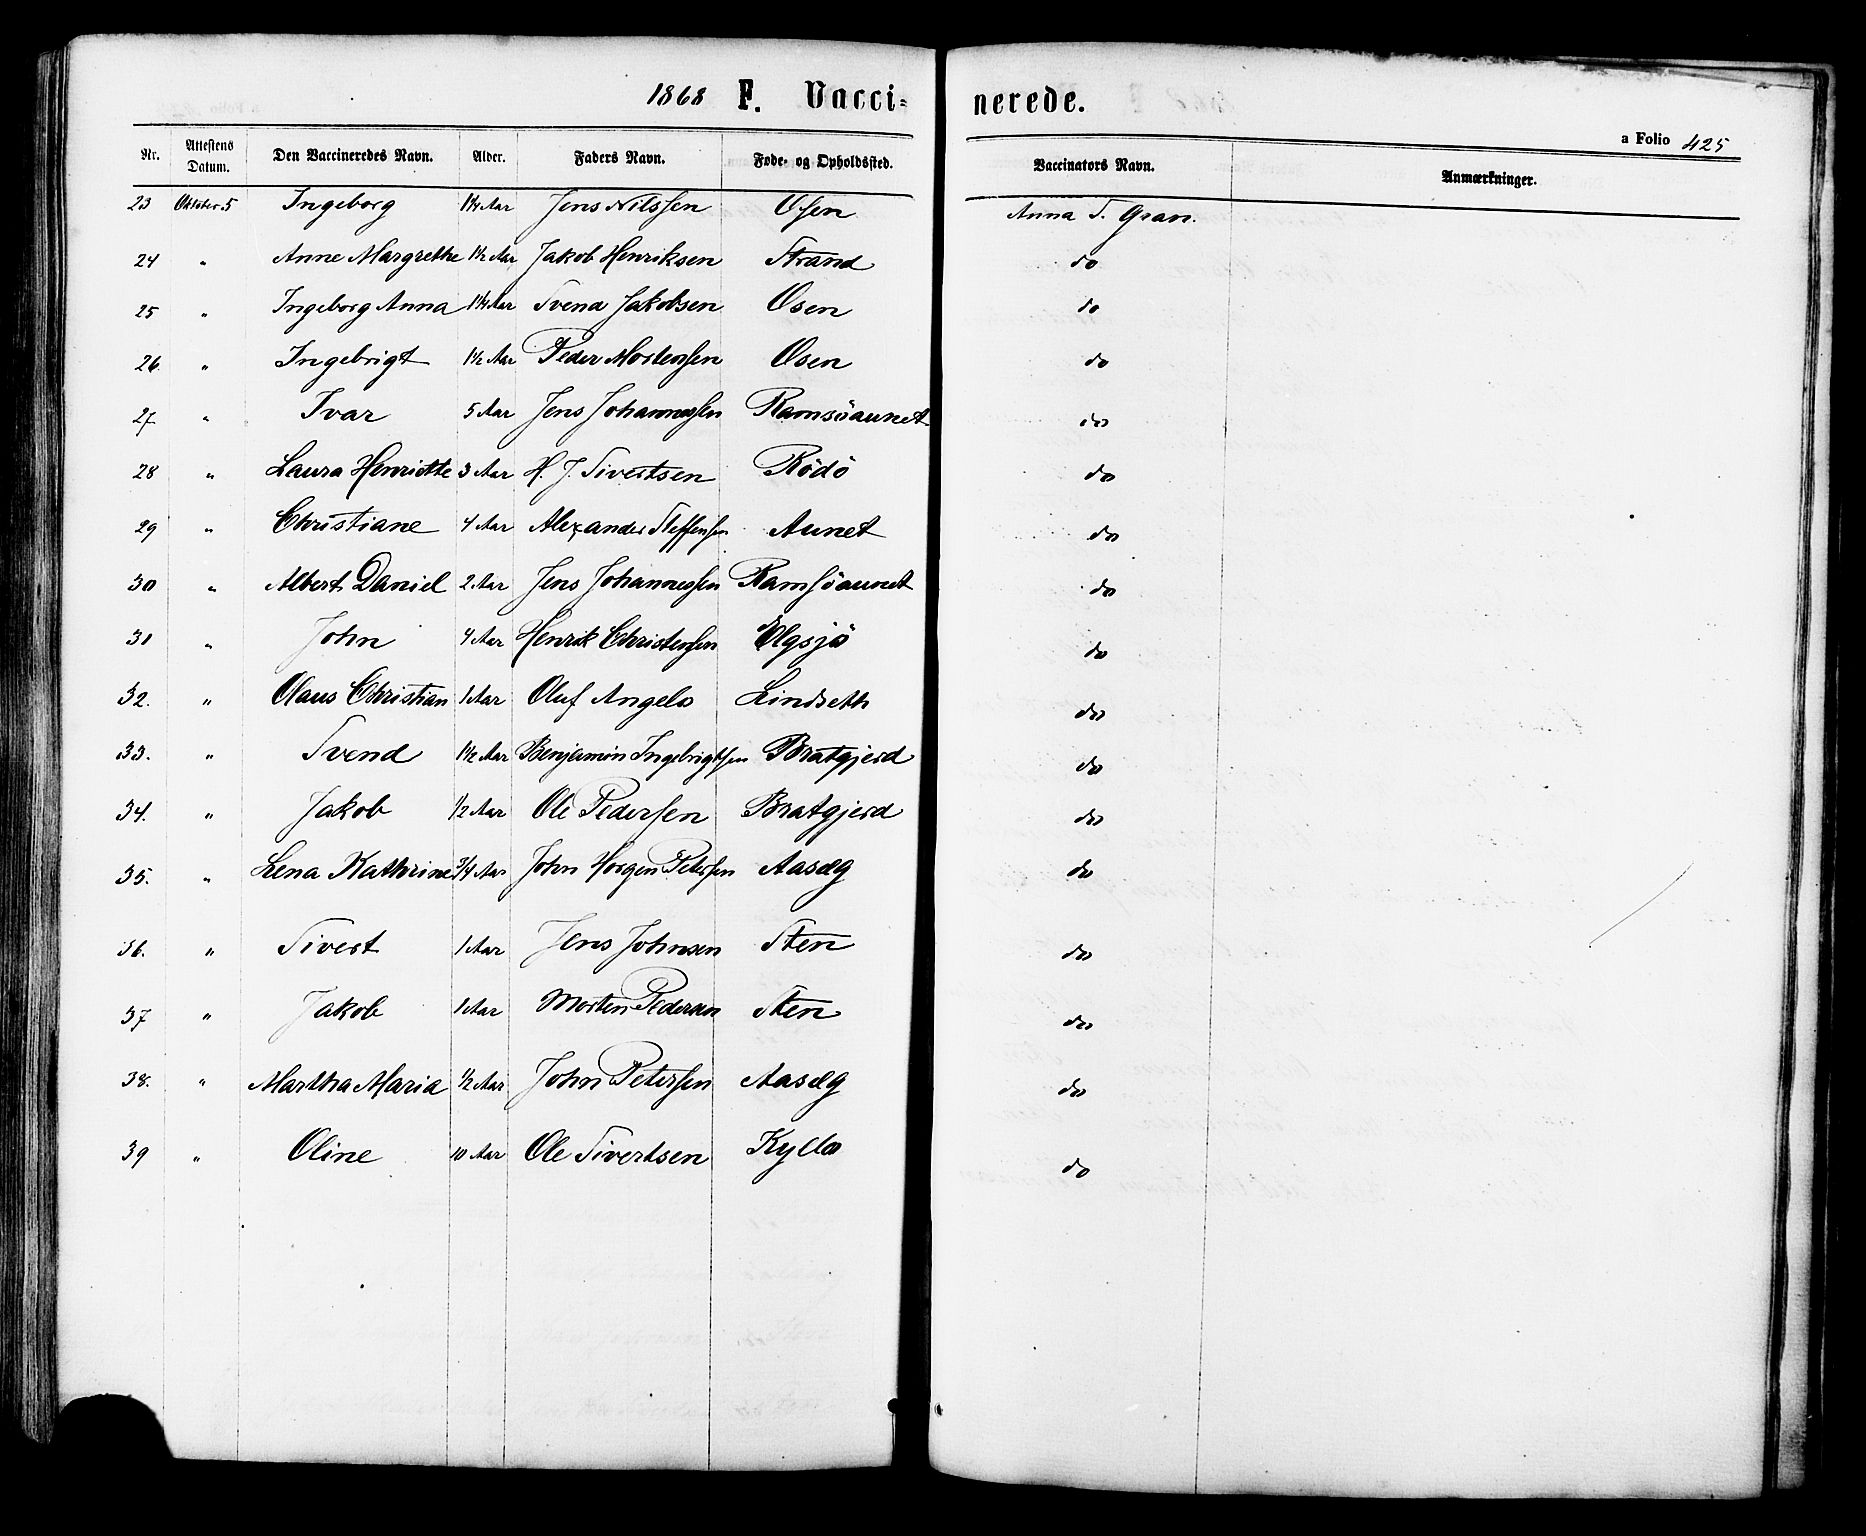 1868 F. Vacci- nerede.
a Folio 425
Nr. Attestens Datum. Den Vaccineredes Navn. Alder. Faders Navn. Føde- og Opholdssted. Vaccinators Navn. Anmærkninger.
23 Oktober 5 Ingeborg 1¼ Aar Jens Nilssen Osen Anna S. Gran.
24 " Anne Margrethe 1½ Aar Jakob Henriksen Strand do
25 " Ingeborg Anna 1¼ Aar Svend Jakobsen Osen do
26. " Ingebrigt 1½ Aar Peder Mortenssen Osen do
27 " Ivar 5 Aar Jens Johannessen Ramsöaunet do
28 " Laura Henriette 3 Aar H. J. Sivertsen Rödö do
29 " Christiane 4 Aar Alexander Steffensen Aunet do
30 " Albert Daniel 2 Aar Jens Johannessen Ramsöaunet do
31 " John 4 Aar Henrik Christenssen Elgsjö do
32. " Olaus Christian 1 Aar Oluf Angelo Lindseth do
33. " Svend 1½ Aar Benjamin Ingebrigtsen Bratgjerd do
34. " Jakob ½ Aar Ole Pederssen Bratgjerd do
35. " Lena Kathrine ¾ Aar John Horgen Peterssen Aasæg do
36. " Sivert 1 Aar Jens Johnsen Sten do
37 " Jakob 1 Aar Morten Pedersen Sten do
38. " Martha Maria ½ Aar John Peterssen Aasæg do
39 " Oline 10 Aar Ole Sivertsen Kyllo do